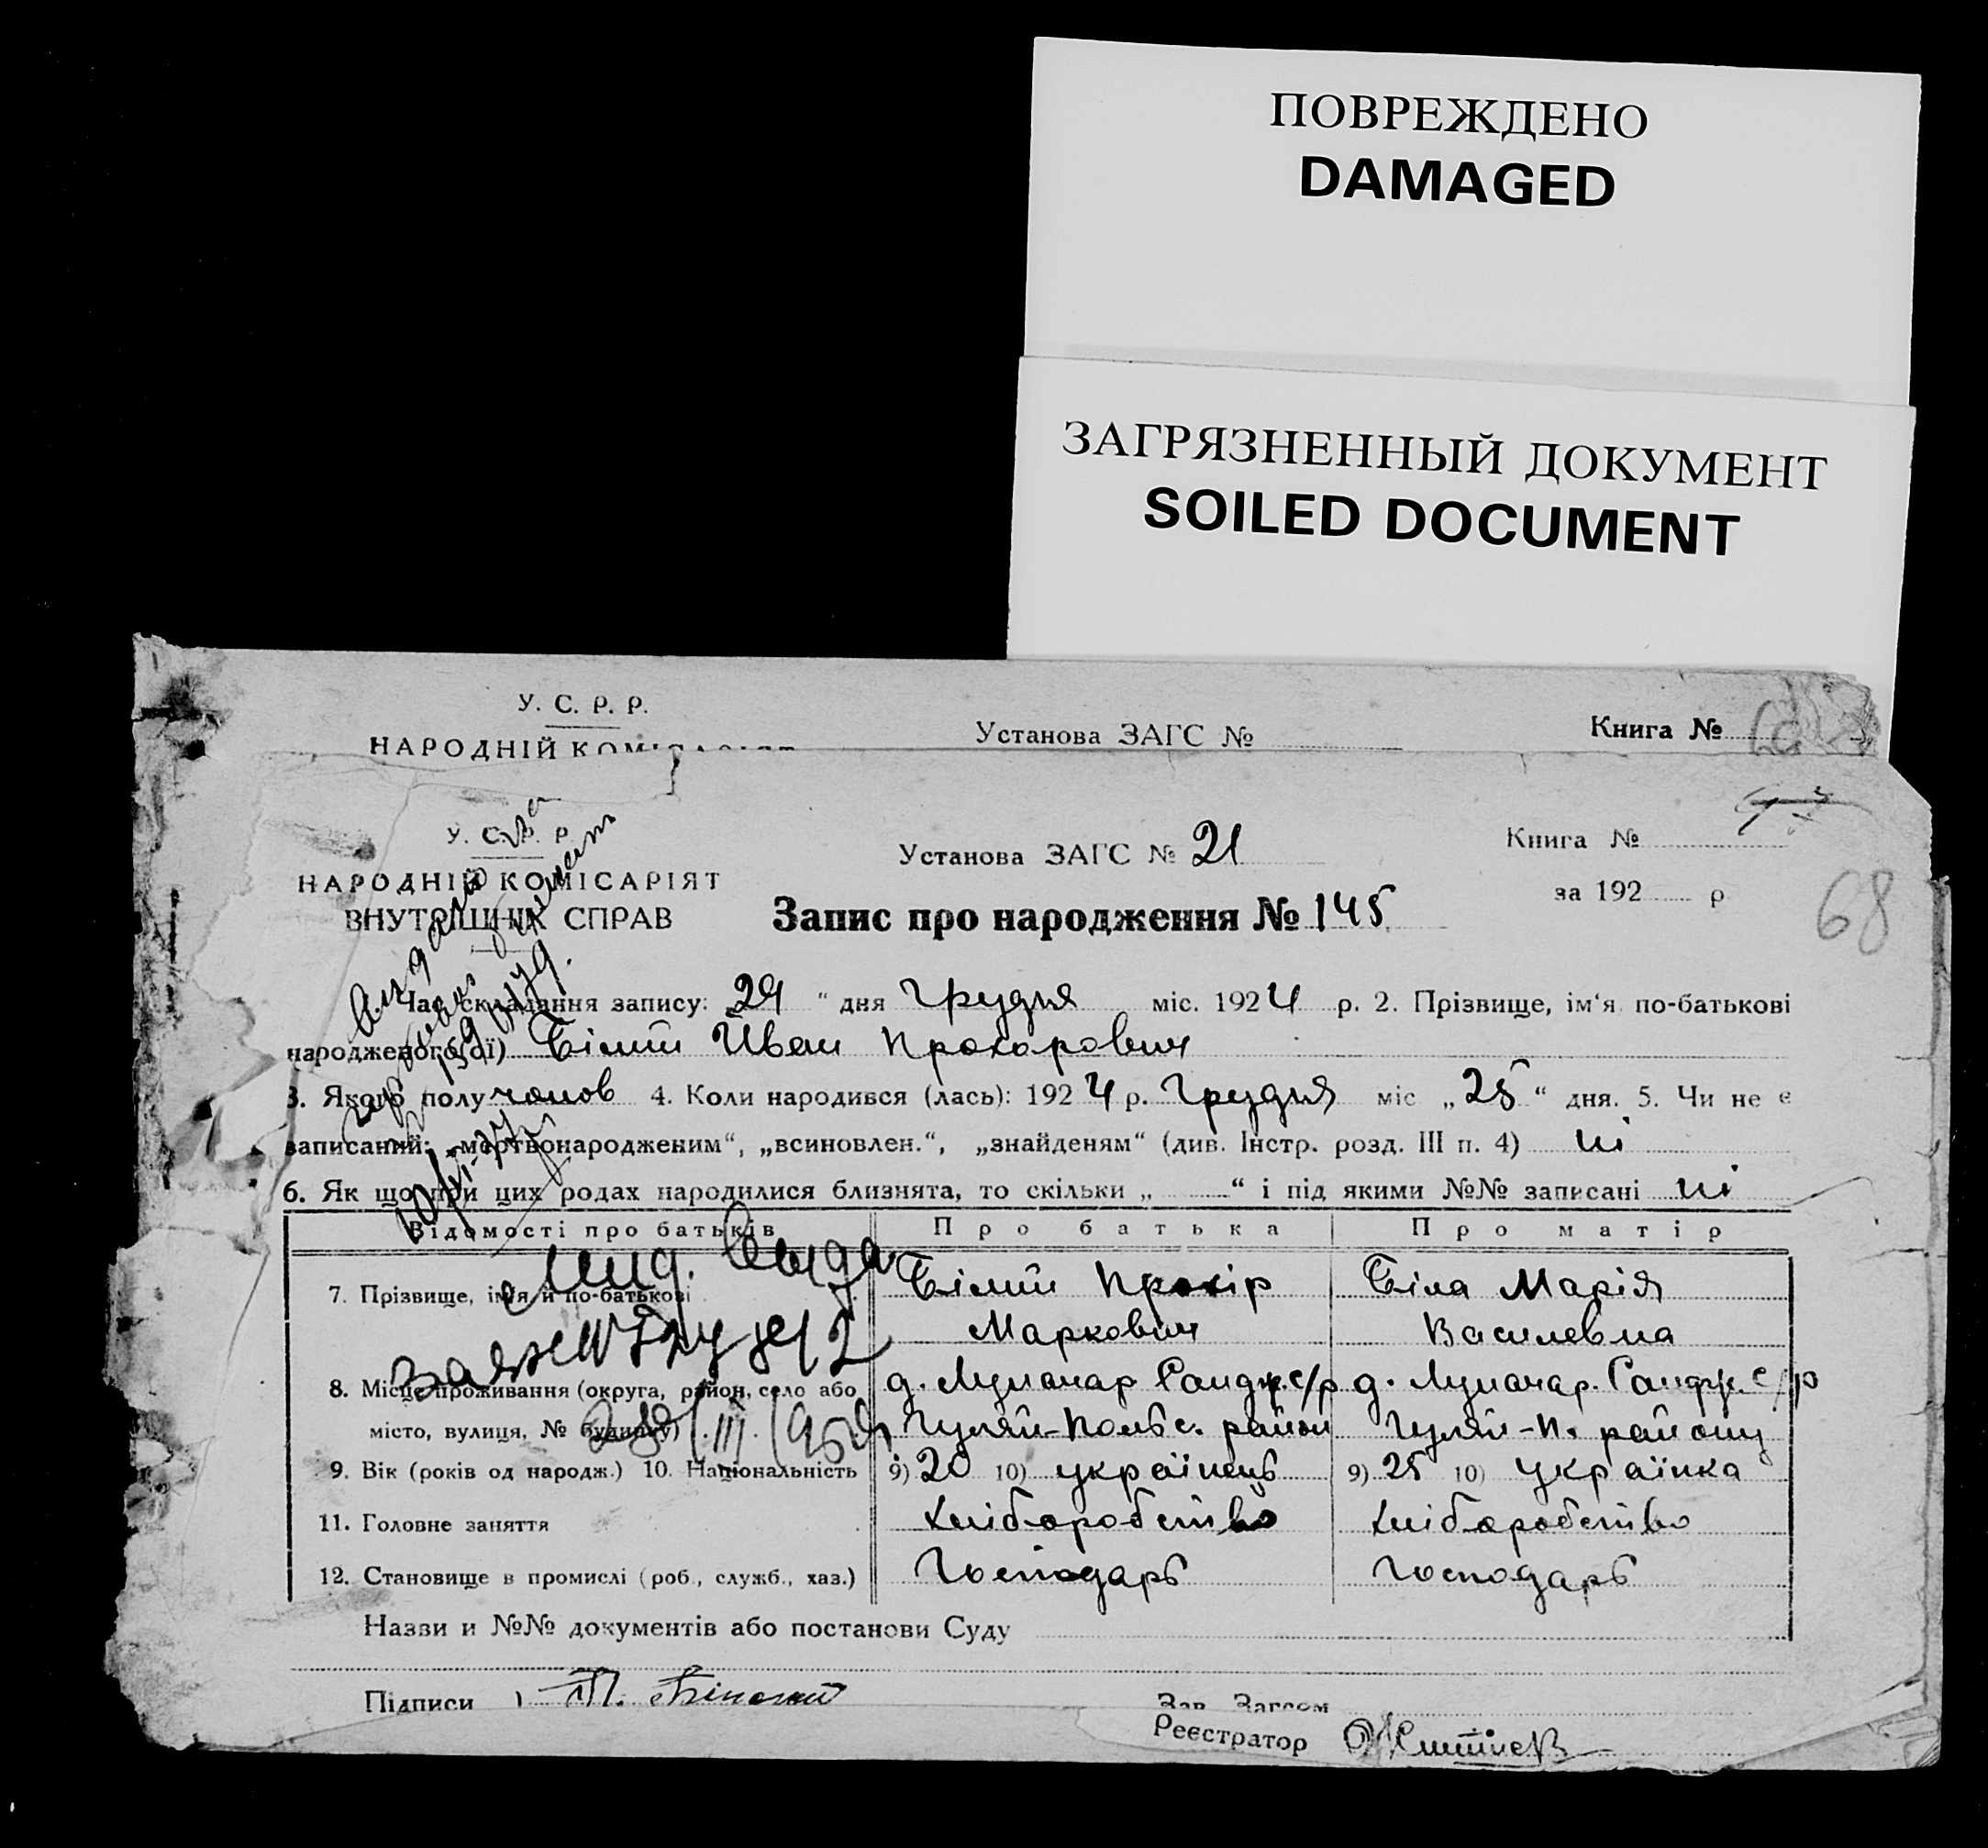 ПОВРЕЖДЕНО
DAMAGED
ЗАГРЯЗНЕННЫЙ ДОКУМЕНТ
SOILED DOCUMENT
У. С. Р. Р.
НАРОДНІЙ КОМІСАРІЯТ
Установа ЗАГС №
Книга №
У. С. Р. Р.
НАРОДНІЙ КОМІСАРІЯТ
ВНУТРІШНІХ СПРАВ
Установа ЗАГС № 21
Запис про народження № 145
Книга №
за 192 р
68
Час складання запису: 29 " дня Грудня міс. 1924 р. 2. Прізвище, ім'я по-батькові
народженого(ої) Білий Йван Прохорович
3. Якого полу чолов 4. Коли народився (лась): 1924 р. Грудня міс „25" дня. 5. Чи не є
записаний: „мертвонародженим", „всиновлен.", „знайденям" (див. Інстр. розд. III п. 4) ні
6. Як що при цих родах народилися близнята, то скільки „ " і під якими №№ записані ні
Відомості про батьків Про батька Про матір
7. Прізвище, ім'я й по-батькові Білий Прохір Біла Марія
Маркович Василевна
8. Місце проживання (округа, район, село або д. Луначар с/р д. Луначар. с/р
місто, вулиця, № будинку) Гуляй-Польс. район Гуляй-П. району
9. Вік (років од народж.) 10. Національність 9) 20 10) українець 9) 25 10) українка
11. Головне заняття Хліборобство Хліборобство
12. Становище в промислі (роб., служб., хаз.) Господарь Господарь
Назви и №№ документів або постанови Суду
Підписи П.
Зав. Загсом
Реєстратор